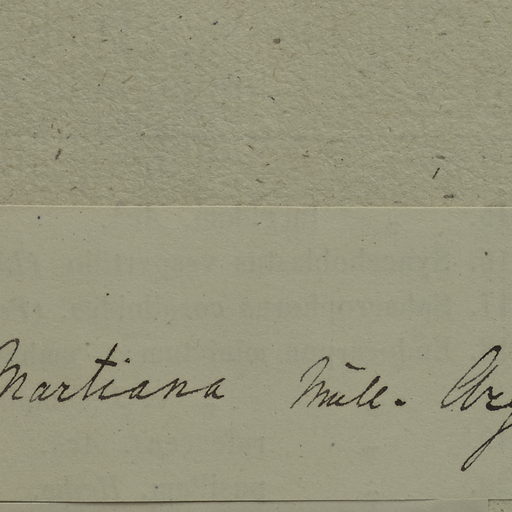 Martiana Müll. Arg